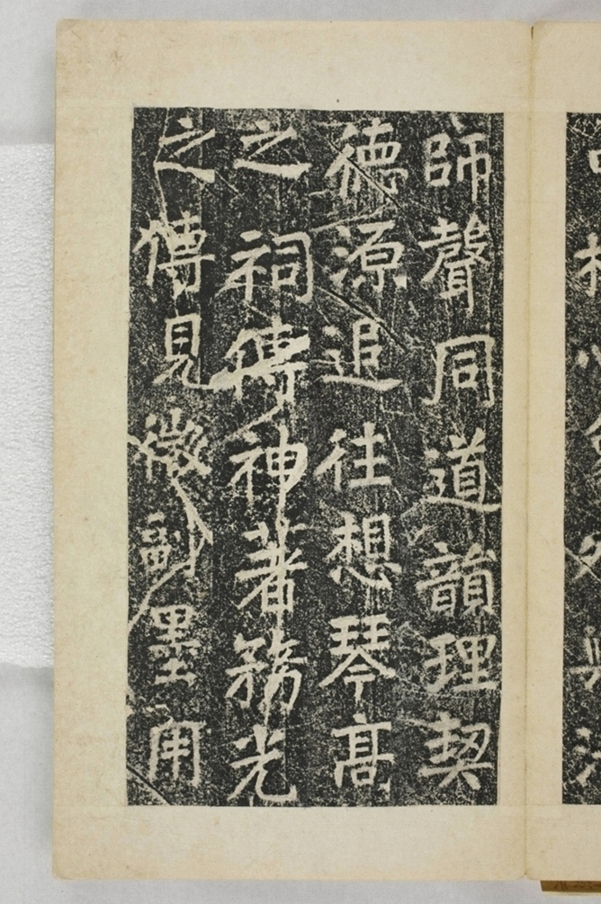 師聲同道韻理契
德源追往想琴髙
之祠傳神著務光
之傳見微副墨用